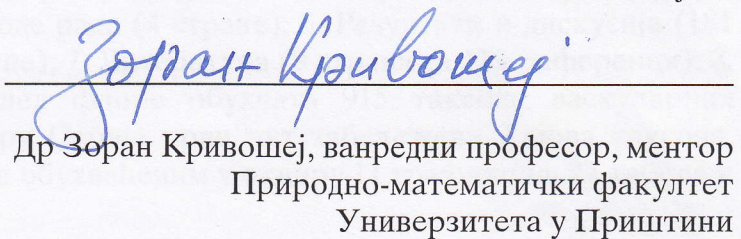 Зоран Кривошеј
Др Зоран Кривошеј, ванредни професор, ментор
Природно-математички факултет
Универзитета у Приштини